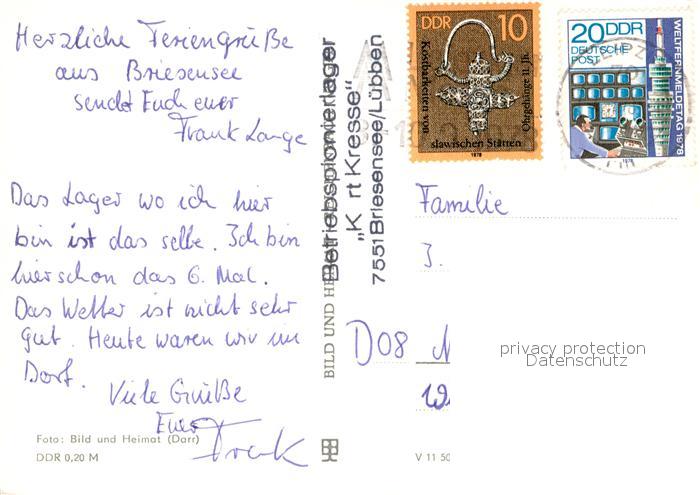 Herzliche Feriengrüße
aus Briesensee
sendet Euch euer
Frank Lange
Das Lager wo ich hier
bin ist das selbe. Ich bin
hier schon das 6. Mal.
Das Wetter ist nicht sehr
gut. Heute waren wir im
Dorf.
Viele Grüße
Euer
Frank
Foto: Bild und Heimat (Darr)
DDR 0,20 M
BILD UND HE
Betriebspionierlager
„K rt Kresse"
7551 Briesensee/Lübben
DDR 10
Kostbarkeiten von
slawischen Stätten
Ohrgehänge 11. Jh.
1978
20 DDR
DEUTSCHE
POST
WELTFERNMELDETAG 1978
1978
Familie
J.
D08
V 11 50
privacy protection
Datenschutz